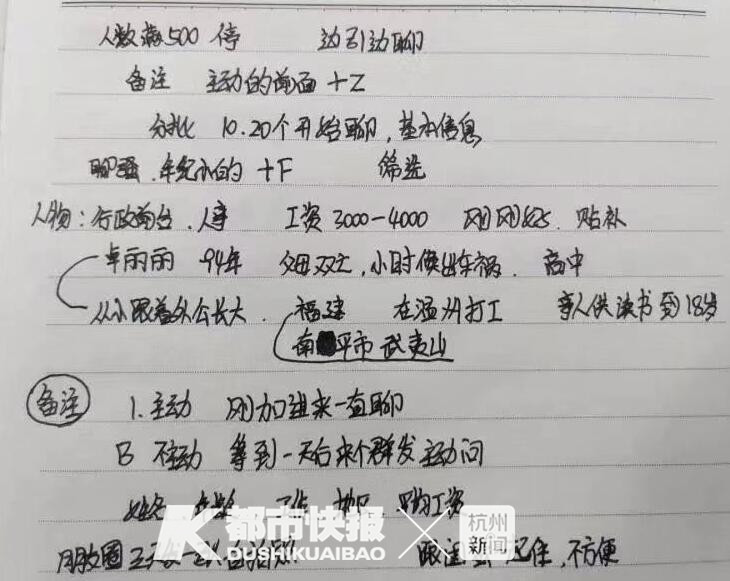 人数满500 停 边引边聊
备注 主动的前面 +Z
分批 10.20个开始聊，基本信息
聊骚.年纪小的 +F 筛选
人物：行政前台.人事 工资3000-4000 刚刚好.贴补
卓丽丽 94年 父母双亡，小时候出车祸. 高中
从小跟着外公长大. 福建 在温州打工 亲人供读书到18岁
南平市 武夷山
备注 1.主动 刚加进来一直聊
B 不主动 等到一天后来个群发主动问
姓名 年龄 工作 地区 工资
朋友圈 三天发一次自拍照 起住，不方便
都市快报 × 杭州新闻
DUSHIKUAIBAO